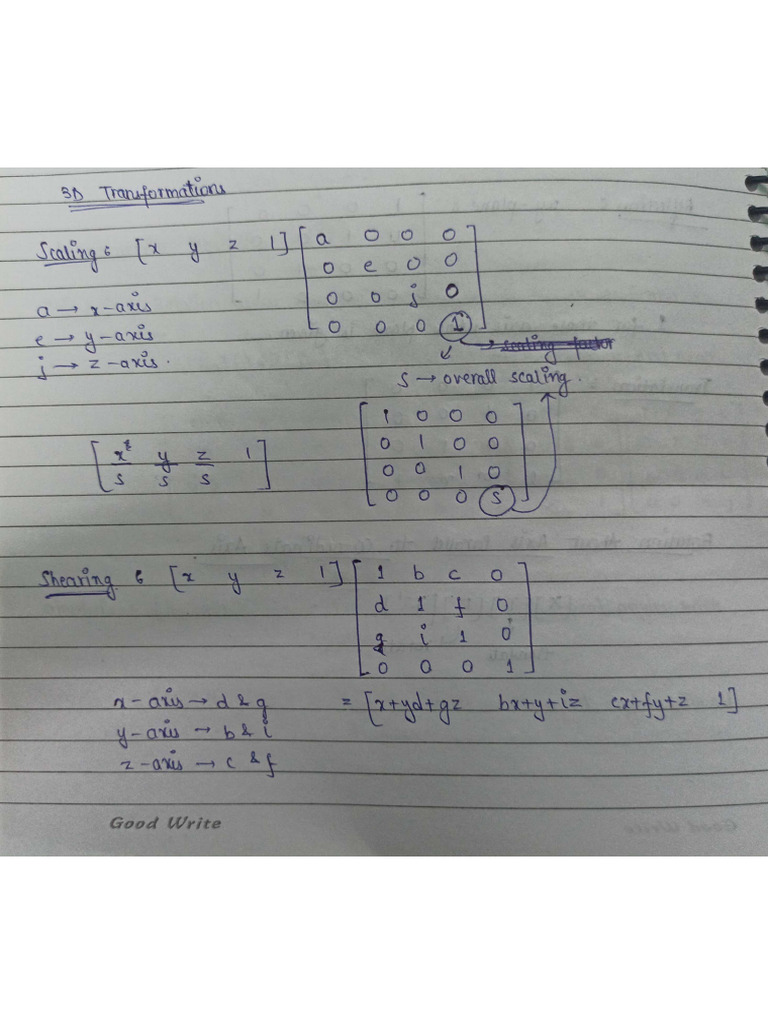 3D Transformations
Scaling : [x y z 1] [a 0 0 0
0 e 0 0
0 0 j 0
0 0 0 1]
a → x-axis
e → y-axis
j → z-axis.
s → overall scaling.
[x/s y/s z/s 1] [1 0 0 0
0 1 0 0
0 0 1 0
0 0 0 s]
Shearing : [x y z 1] [1 b c 0
d 1 f 0
g i 1 0
0 0 0 1]
x-axis → d & g
= [x+yd+gz bx+y+iz cx+fy+z 1]
y-axis → b & i
z-axis → c & f
Good Write